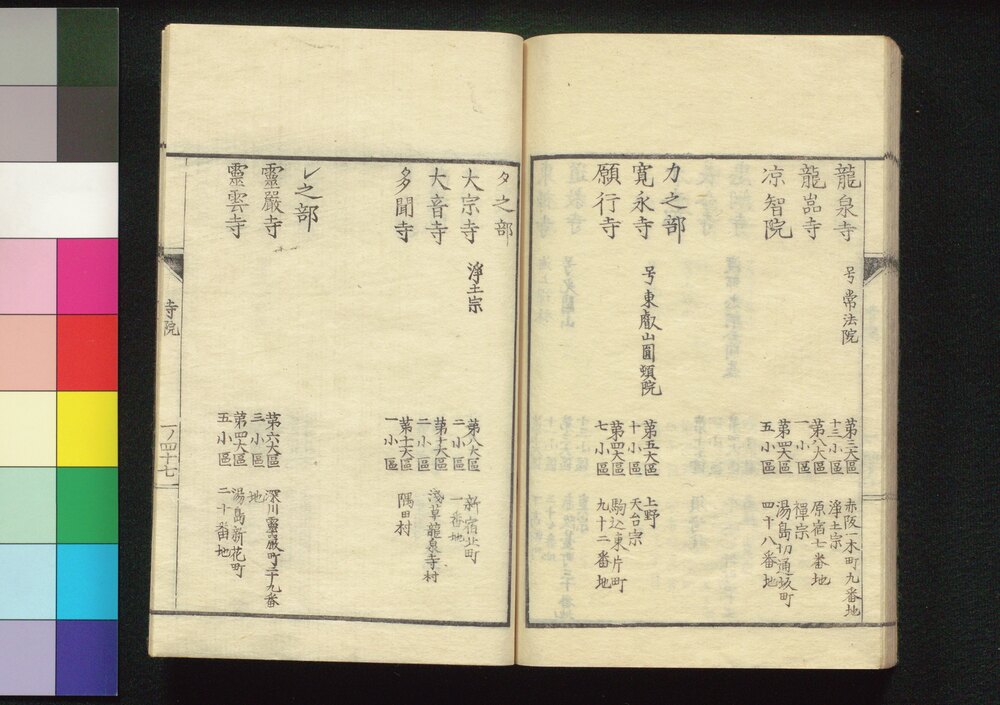 龍泉寺 号常法院 第三大區十三小區 赤阪一木町九番地浄土宗
龍嵓寺 第八大區一小區 原宿七番地禪宗
凉智院 第四大區五小區 湯島切通坂町四十八番地
カ之部
寛永寺 号東叡山圓頓院 第五大區十小區 上野天台宗
願行寺 第四大區七小區 駒込東片町九十二番地
タ之部
大宗寺 浄土宗 第八大區二小區 新宿北町一番地
大音寺 第十大區二小區 淺草龍泉寺村
多聞寺 第十一大區一小區 隅田村
レ之部
靈嚴寺 第六大區三小區 深川靈嚴町三十九番地
靈雲寺 第四大區五小區 湯島新花町二十番地
寺院
一ノ四十七